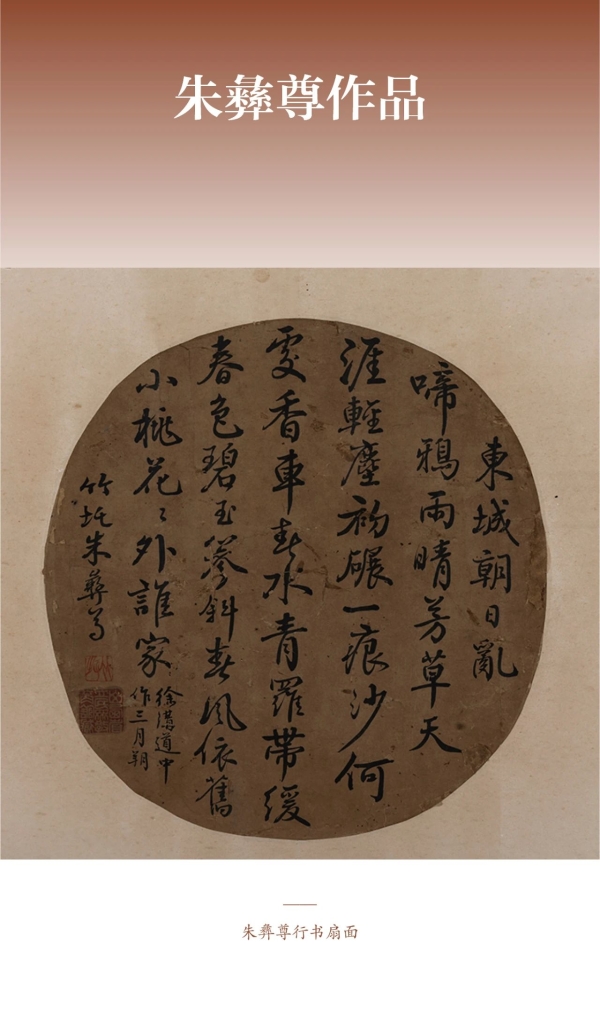 朱彝尊作品
東城朝日亂
啼鴉雨晴芳草天
涯輕塵初碾一痕沙何
處香車春水青羅帶緩
春色碧玉簪斜春風依舊
小桃花〻外誰家
徐溝道中
作三月朔
竹垞朱彝尊
朱彝尊行书扇面